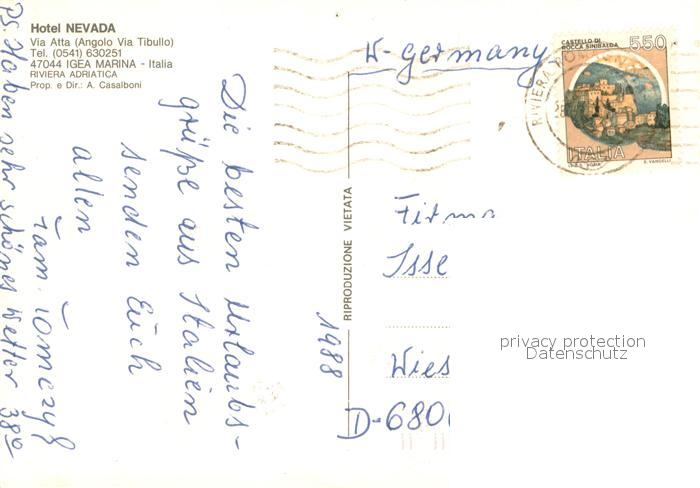 Hotel NEVADA
Via Atta (Angolo Via Tibullo)
Tel. (0541) 630251
47044 IGEA MARINA - Italia
RIVIERA ADRIATICA
Prop. e Dir.: A. Casalboni
Die besten Urlaubs-
grüße aus Italien
senden Euch
allen
Fam.
PS. Haben sehr schönes Wetter 38°
1988
RIPRODUZIONE VIETATA
W-Germany
CASTELLO DI
ROCCA SINIBALDA
550
ITALIA
I.P.S. ROMA
E. VANGELLI
RIVIERA
Firma
Isse
Wies
D-680
privacy protection
Datenschutz